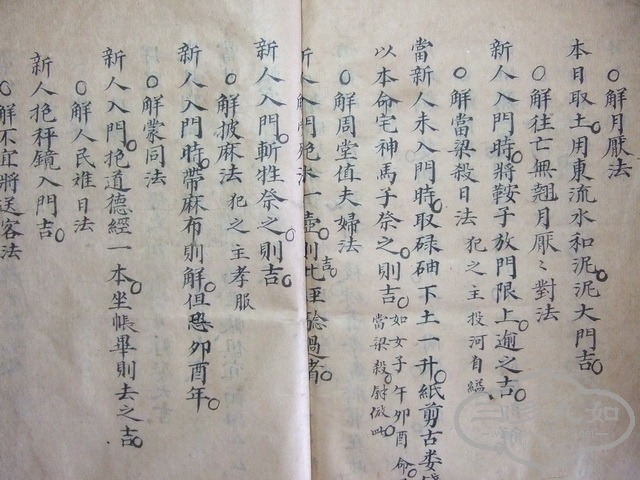 ○解月厭法
本日取土用東流水和泥泥大門吉○
○解往亡無翹月厭〻對法
新人入門時○將鞍子放門限上○逾之吉○
○解當梁殺日法 犯之主投河自縊
當新人未入門時○取碌碡下土一升○紙剪古婁
以本命宅神馬子祭之○則吉○如女子午卯酉命○
當梁殺○倣此○
○解周堂值夫婦法
新人入門抱一壺○則吉○過者○
新人入門○斬牲祭之○則吉○
○解披麻法 犯之主孝服
新人入門時○帶麻布則解○但恐卯酉年○
○解蒙同法
新人入門○抱道德經一本坐帳畢則去之吉○
○解人民離日法
新人抱秤鏡入門吉○
○解不宜將送客法